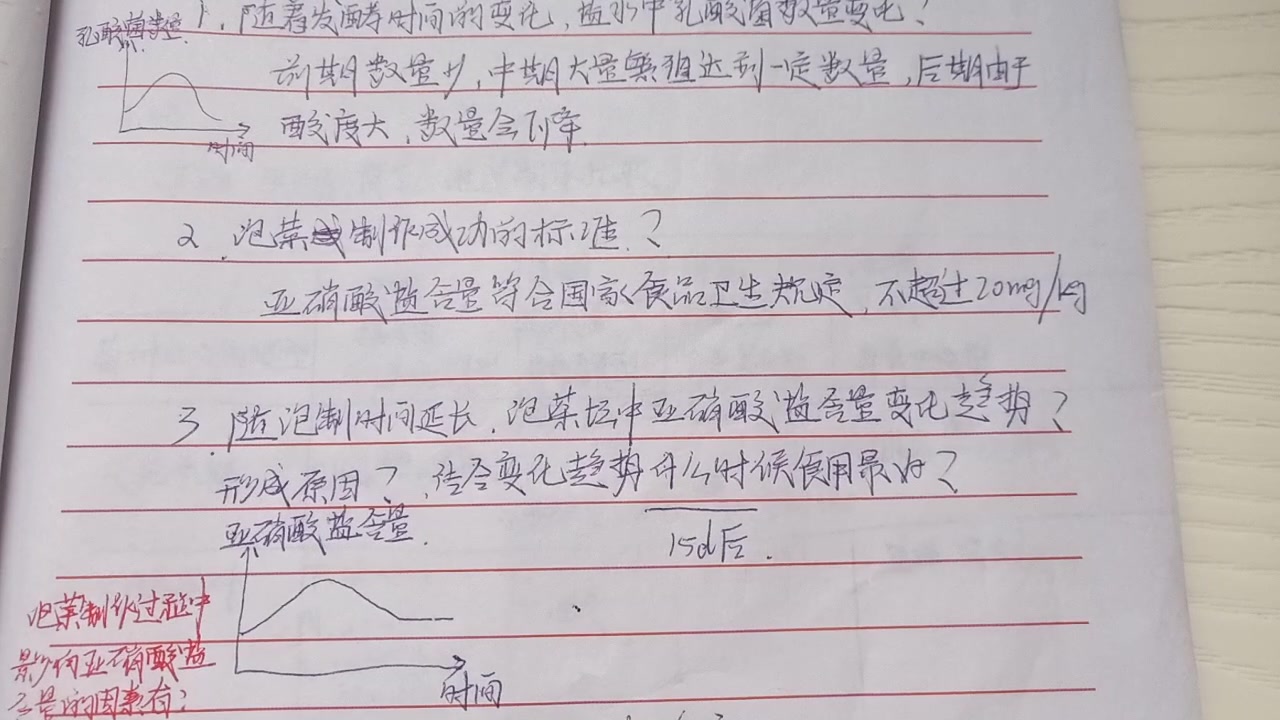 乳酸菌数量
1. 随着发酵时间的变化,盐水中乳酸菌数量变化?
前期数量少,中期大量繁殖达到一定数量,后期由于
酸度大,数量会下降.
时间
2. 泡菜制作成功的标准.?
亚硝酸盐含量符合国家食品卫生规定,不超过20mg/kg
3. 随泡制时间延长,泡菜坛中亚硝酸盐含量变化趋势?
形成原因?,结合变化趋势什么时候食用最好?
亚硝酸盐含量.
15d后.
泡菜制作过程中
影响亚硝酸盐
含量的因素有:
时间